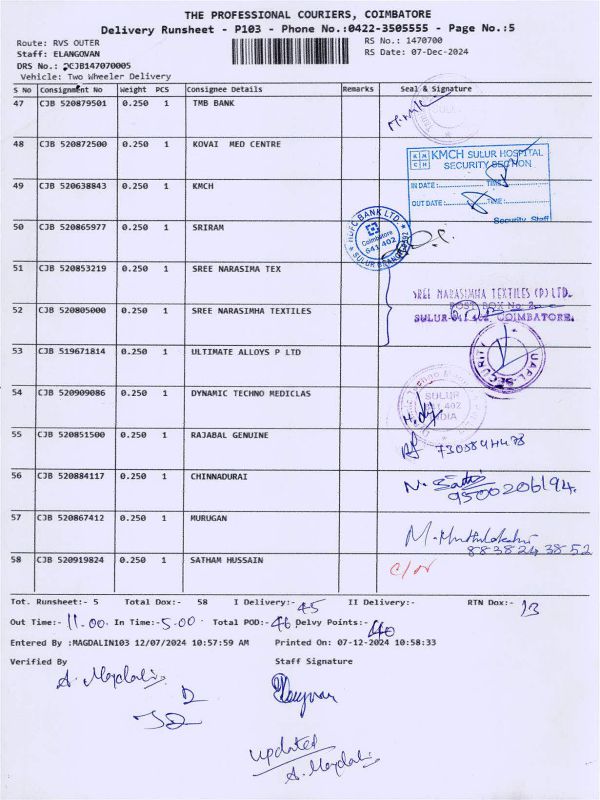 THE PROFESSIONAL COURIERS, COIMBATORE
Delivery Runsheet - P103 - Phone No.:0422-3505555 - Page No.:5
Route: RVS OUTER
RS No.: 1470700
Staff: ELANGOVAN
RS Date: 07-Dec-2024
DRS No.: DCJB147070005
Vehicle: Two Wheeler Delivery
S No Consignment No Weight PCS Consignee Details Remarks Seal & Signature
47 CJB 520879501 0.250 1 TMB BANK
48 CJB 520872500 0.250 1 KOVAI MED CENTRE
KMCH KMCH SULUR HOSPITAL
SECURITY SECTION
49 CJB 520638843 0.250 1 KMCH
IN DATE: TIME:
OUT DATE: TIME:
Security Staff
50 CJB 520865977 0.250 1 SRIRAM
HDFC BANK LTD.
Coimbatore
641 402
SULUR BRANCH
51 CJB 520853219 0.250 1 SREE NARASIMA TEX
SREE NARASIMHA TEXTILES (P) LTD.
POST BOX No. 2
52 CJB 520805000 0.250 1 SREE NARASIMHA TEXTILES
SULUR-641 402 COIMBATORE.
53 CJB 519671814 0.250 1 ULTIMATE ALLOYS P LTD
UAPL SECURITY
54 CJB 520909086 0.250 1 DYNAMIC TECHNO MEDICLAS
SULUR
641 402
INDIA
55 CJB 520851500 0.250 1 RAJABAL GENUINE
56 CJB 520884117 0.250 1 CHINNADURAI
9500206194.
57 CJB 520867412 0.250 1 MURUGAN
M. Muthulakshmi
8838243852
58 CJB 520919824 0.250 1 SATHAM HUSSAIN
Tot. Runsheet:- 5 Total Dox:- 58 I Delivery:- 45 II Delivery:- RTN Dox:- 13
Out Time:- 11.00 In Time:- 5.00 Total POD:- 46 Delvy Points:- 40
Entered By :MAGDALIN103 12/07/2024 10:57:59 AM Printed On: 07-12-2024 10:58:33
Verified By Staff Signature
A. Magdalin
updated
A. Magdalin